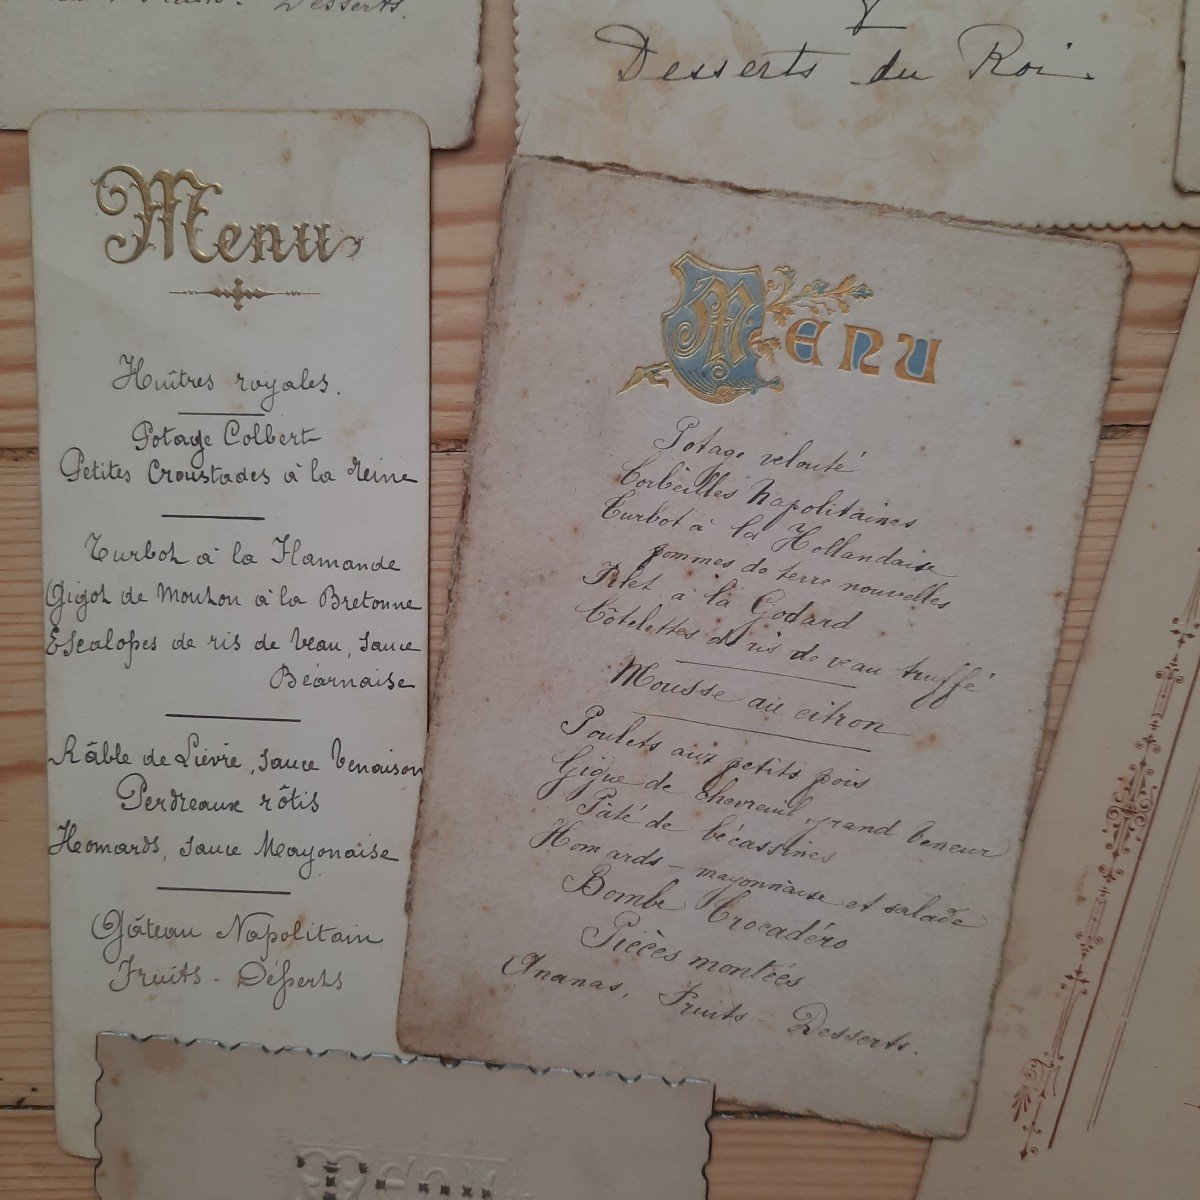 Desserts.
Desserts du Roi
Menu
Huîtres royales.
Potage Colbert
Petites Croustades à la Reine
Turbot à la Flamande
Gigot de Mouton à la Bretonne
Escalopes de ris de Veau, sauce
Béarnaise
Râble de Lièvre, sauce Venaison
Perdreaux rôtis
Homards, sauce Mayonaise
Gâteau Napolitain
Fruits - Désserts
Menu
Potage velouté
Corbeilles Napolitaines
Turbot à la Hollandaise
pommes de terre nouvelles
Filet à la Godard
Côtelettes d ris de veau truffé
Mousse au citron
Poulets aux petits pois
Gigue de chevreuil, grand veneur
Pâté de bécassines
Homards - mayonnaise et salade
Bombe Trocadéro
Pièces montées
Ananas, Fruits - Desserts.
Menu